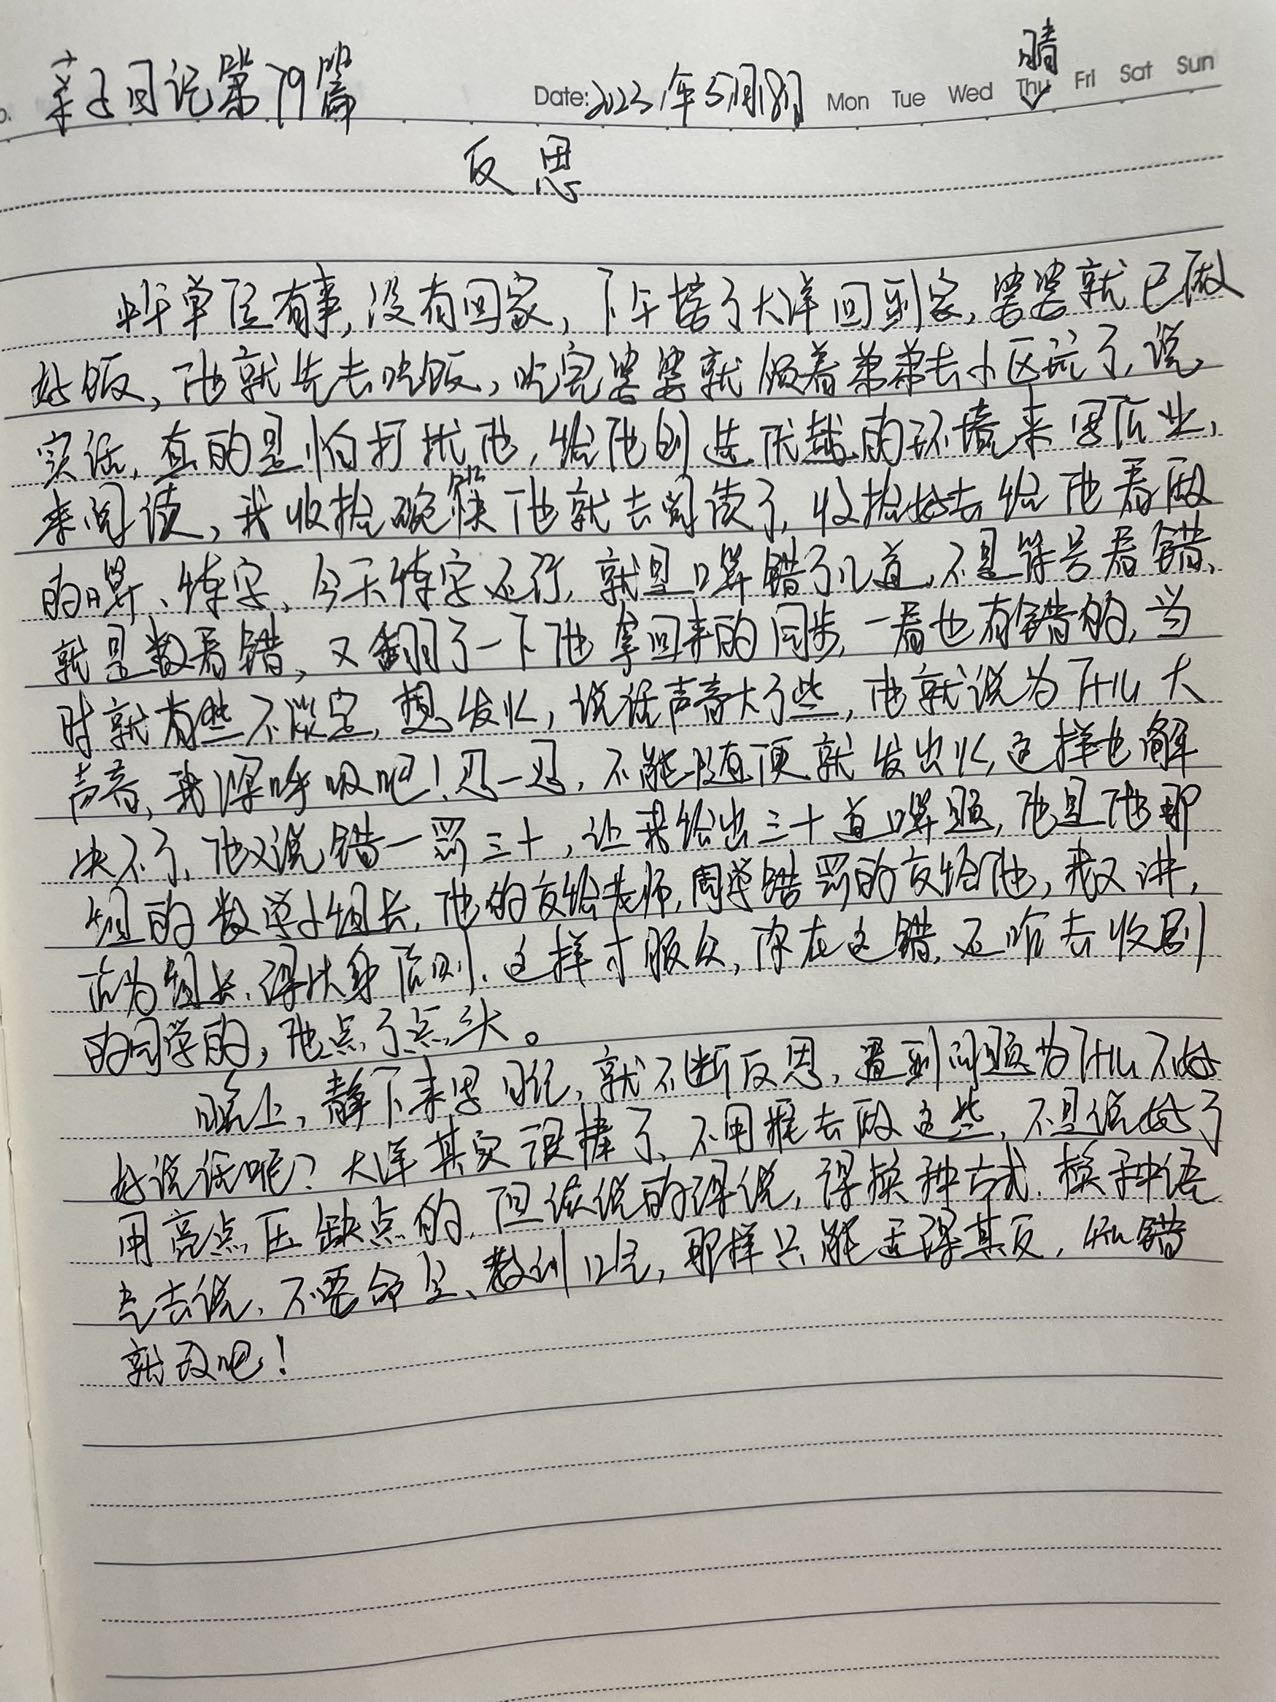 亲子日记第79篇
Date: 2023年5月18日 Mon Tue Wed Thu Fri Sat Sun 晴
反思
中午单位有事,没有回家,下午接了大洋回到家,婆婆就已做
好饭,他就先去吃饭,吃完婆婆就领着弟弟去小区玩了,说
实话,真的是怕打扰他,给他创造优越的环境来写作业,
来阅读,我收拾碗筷他就去阅读了,收拾好去给他看做
的口算、练字,今天练字还行,就是口算错了几道,不是符号看错,
就是数看错,又翻了一下他拿回来的同步,一看也有错的,当
时就有些不淡定,想发火,说话声音大了些,他就说为什么大
声音,我深呼吸吧!忍一忍,不能随便就发出火,这样也解
决不了,他又说错一罚三十,让我给出三十道口算题,他是他那
组的数学小组长,他的交给老师,同学错罚的交给他,我又讲,
作为组长,得以身作则,这样才服众,你在这错,还咋去收别
的同学的,他点了点头。
晚上,静下来写日记,就不断反思,遇到问题为什么不好
好说话呢?大洋其实很棒了,不用推去做这些,不是说好了
用亮点压缺点的,但该说的得说,得换种方式,换种语
气去说,不要命令、教训口气,那样只能适得其反,知错
就改吧!